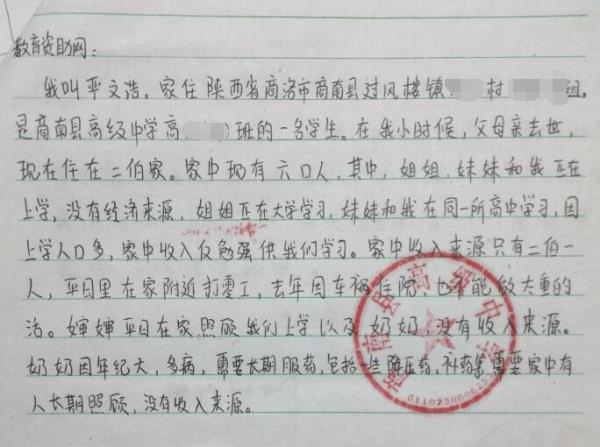 教育资助网:
我叫平文浩,家住陕西省商洛市商南县过风楼镇 村 组,
是商南县高级中学高 班的一名学生。在我小时候,父母亲去世,
现在住在二伯家。家中现有六口人,其中,姐姐,妹妹和我正在
上学,没有经济来源,姐姐正在大学学习,妹妹和我在同一所高中学习,因
上学人口多,家中收入仅勉强供我们学习。家中收入来源只有二伯一
人,平日里在家附近打零工,去年因车祸住院,也不能做太重的
活。婶婶平日在家照顾我们上学以及奶奶,没有收入来源。
奶奶因年纪大,多病,需要长期服药,包括一些降压药,补药等需要家中有
人长期照顾,没有收入来源。
商南县高级中学